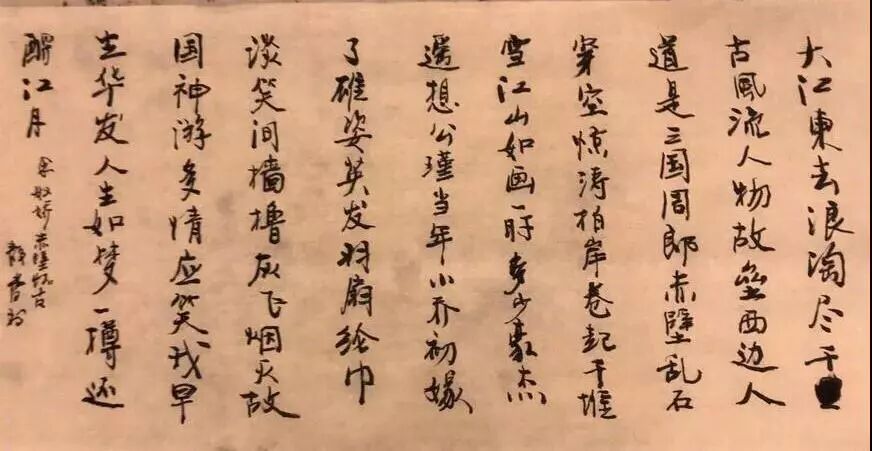 大江東去浪淘尽千
古風流人物故壘西边人
道是三国周郎赤壁乱石
穿空惊涛拍岸卷起千堆
雪江山如画一时多少豪杰
遥想公瑾当年小乔初嫁
了雄姿英发羽扇纶巾
淡笑间樯橹灰飞烟灭故
国神游多情应笑我早
生华发人生如梦一樽还
酹江月
念奴娇赤壁怀古